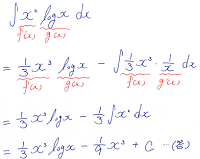 ∫ x² log x dx
f'(x) g(x)
= 1/3 x³ log x − ∫ 1/3 x³ · 1/x dx
f(x) g(x) f(x) g'(x)
= 1/3 x³ log x − 1/3 ∫ x² dx
= 1/3 x³ log x − 1/9 x³ + C …(答)